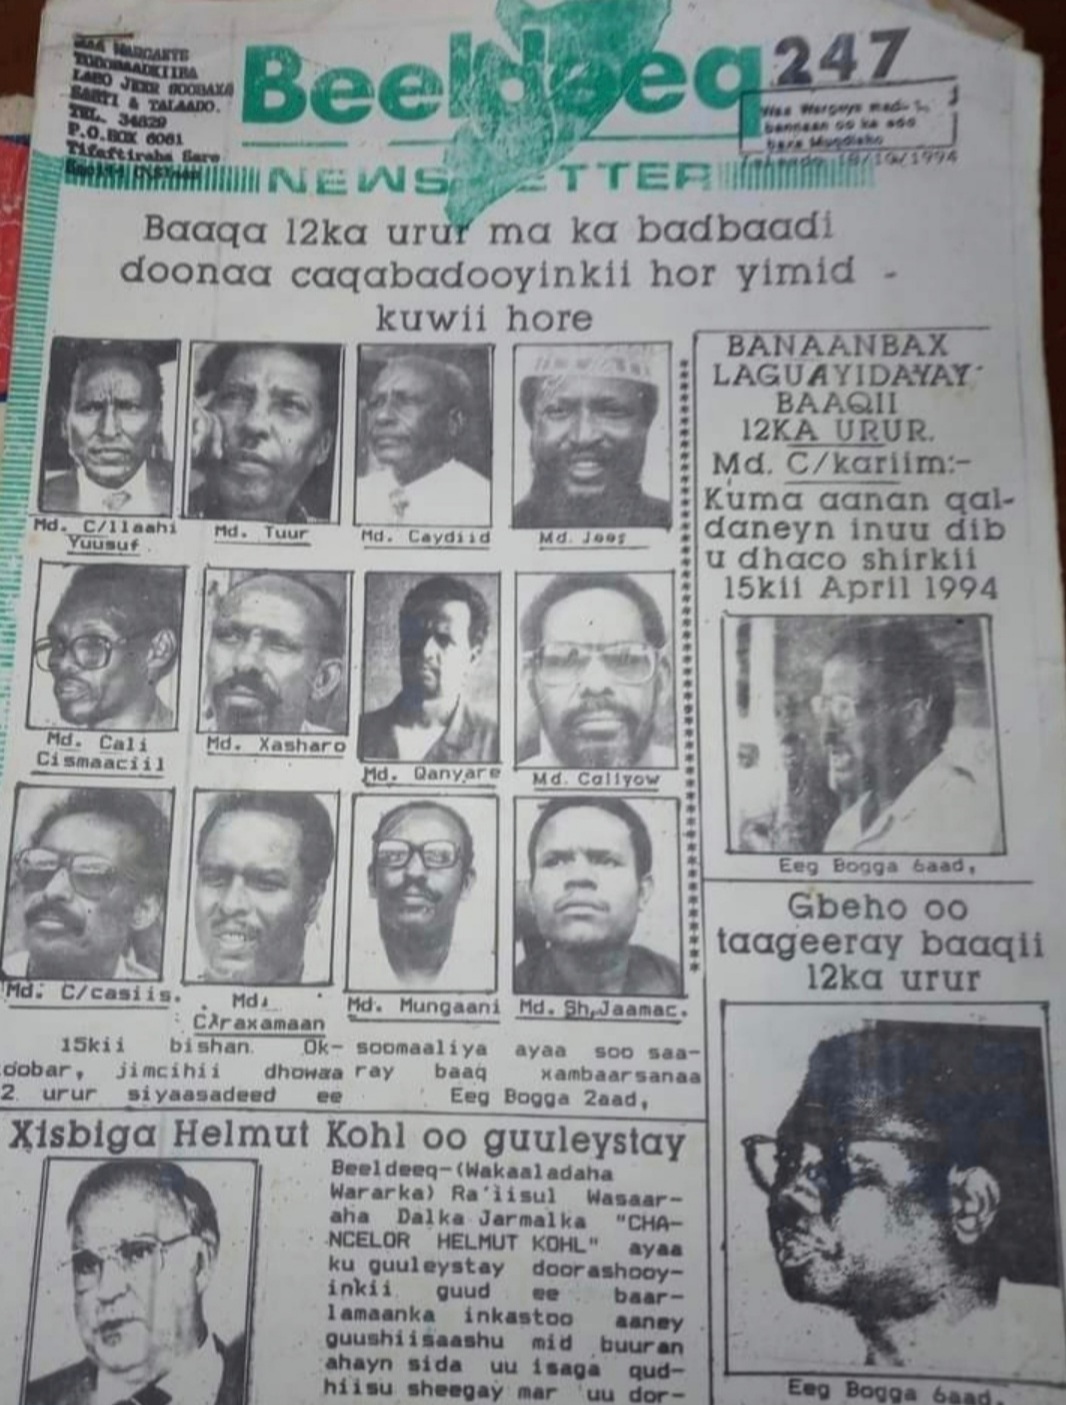 WAA WARGAKYS
TODOBAADKIIBA
LABO JEER SOOBAXA
SABTI & TALAADO.
TEL. 34829
P.O.BOX 6061
Tifaftiraha Sare
Beeldeeq
247
Waa Wargeys madax
bannaan oo ka soo
baxa Muqdisho
Talaado 18/10/1994
NEWSLETTER
Baaqa 12ka urur ma ka badbaadi
doonaa caqabadooyinkii hor yimid -
kuwii hore
Md. C/llaahi
Yuusuf
Md. Tuur
Md. Caydiid
Md. Jees
Md. Cali
Cismaaciil
Md. Xasharo
Md. Qanyare
Md. Caliyow
Md. C/casiis.
Md.
C/raxamaan
Md. Mungaani
Md. Sh,Jaamac.
15kii bishan Ok-
oobar, jimcihii dhowaa
2 urur siyaasadeed ee
soomaaliya ayaa soo saa-
ray baaq xambaarsanaa
Eeg Bogga 2aad,
BANAANBAX
LAGUAYIDAYAY
BAAQII
12KA URUR.
Md. C/kariim:-
Kuma aanan qal-
daneyn inuu dib
u dhaco shirkii
15kii April 1994
Eeg Bogga 6aad,
Gbeho oo
taageeray baaqii
12ka urur
Eeg Bogga 6aad.
Xisbiga Helmut Kohl oo guuleystay
Beeldeeq-(Wakaaladaha
Wararka) Ra'iisul Wasaar-
aha Dalka Jarmalka "CHA-
NCELOR HELMUT KOHL" ayaa
ku guuleystay doorashooy-
inkii guud ee baar-
lamaanka inkastoo aaney
guushiisaashu mid buuran
ahayn sida uu isaga qud-
hiisu sheegay mar uu dor-